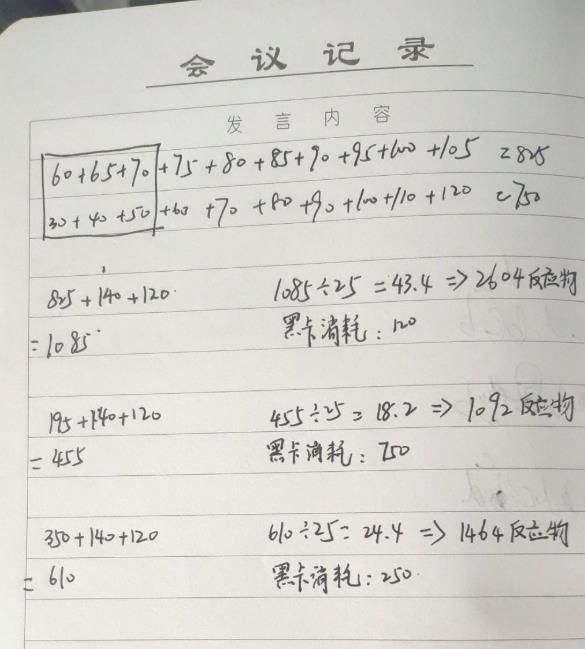 会议记录
发言内容
60+65+70+75+80+85+90+95+100+105 =825
30+40+50+60+70+80+90+100+110+120 =750
825+140+120 1085÷25=43.4⇒2604反应物
=1085 黑卡消耗：120
195+140+120 455÷25=18.2⇒1092反应物
=455 黑卡消耗：750
350+140+120 610÷25=24.4⇒1464反应物
=610 黑卡消耗：250